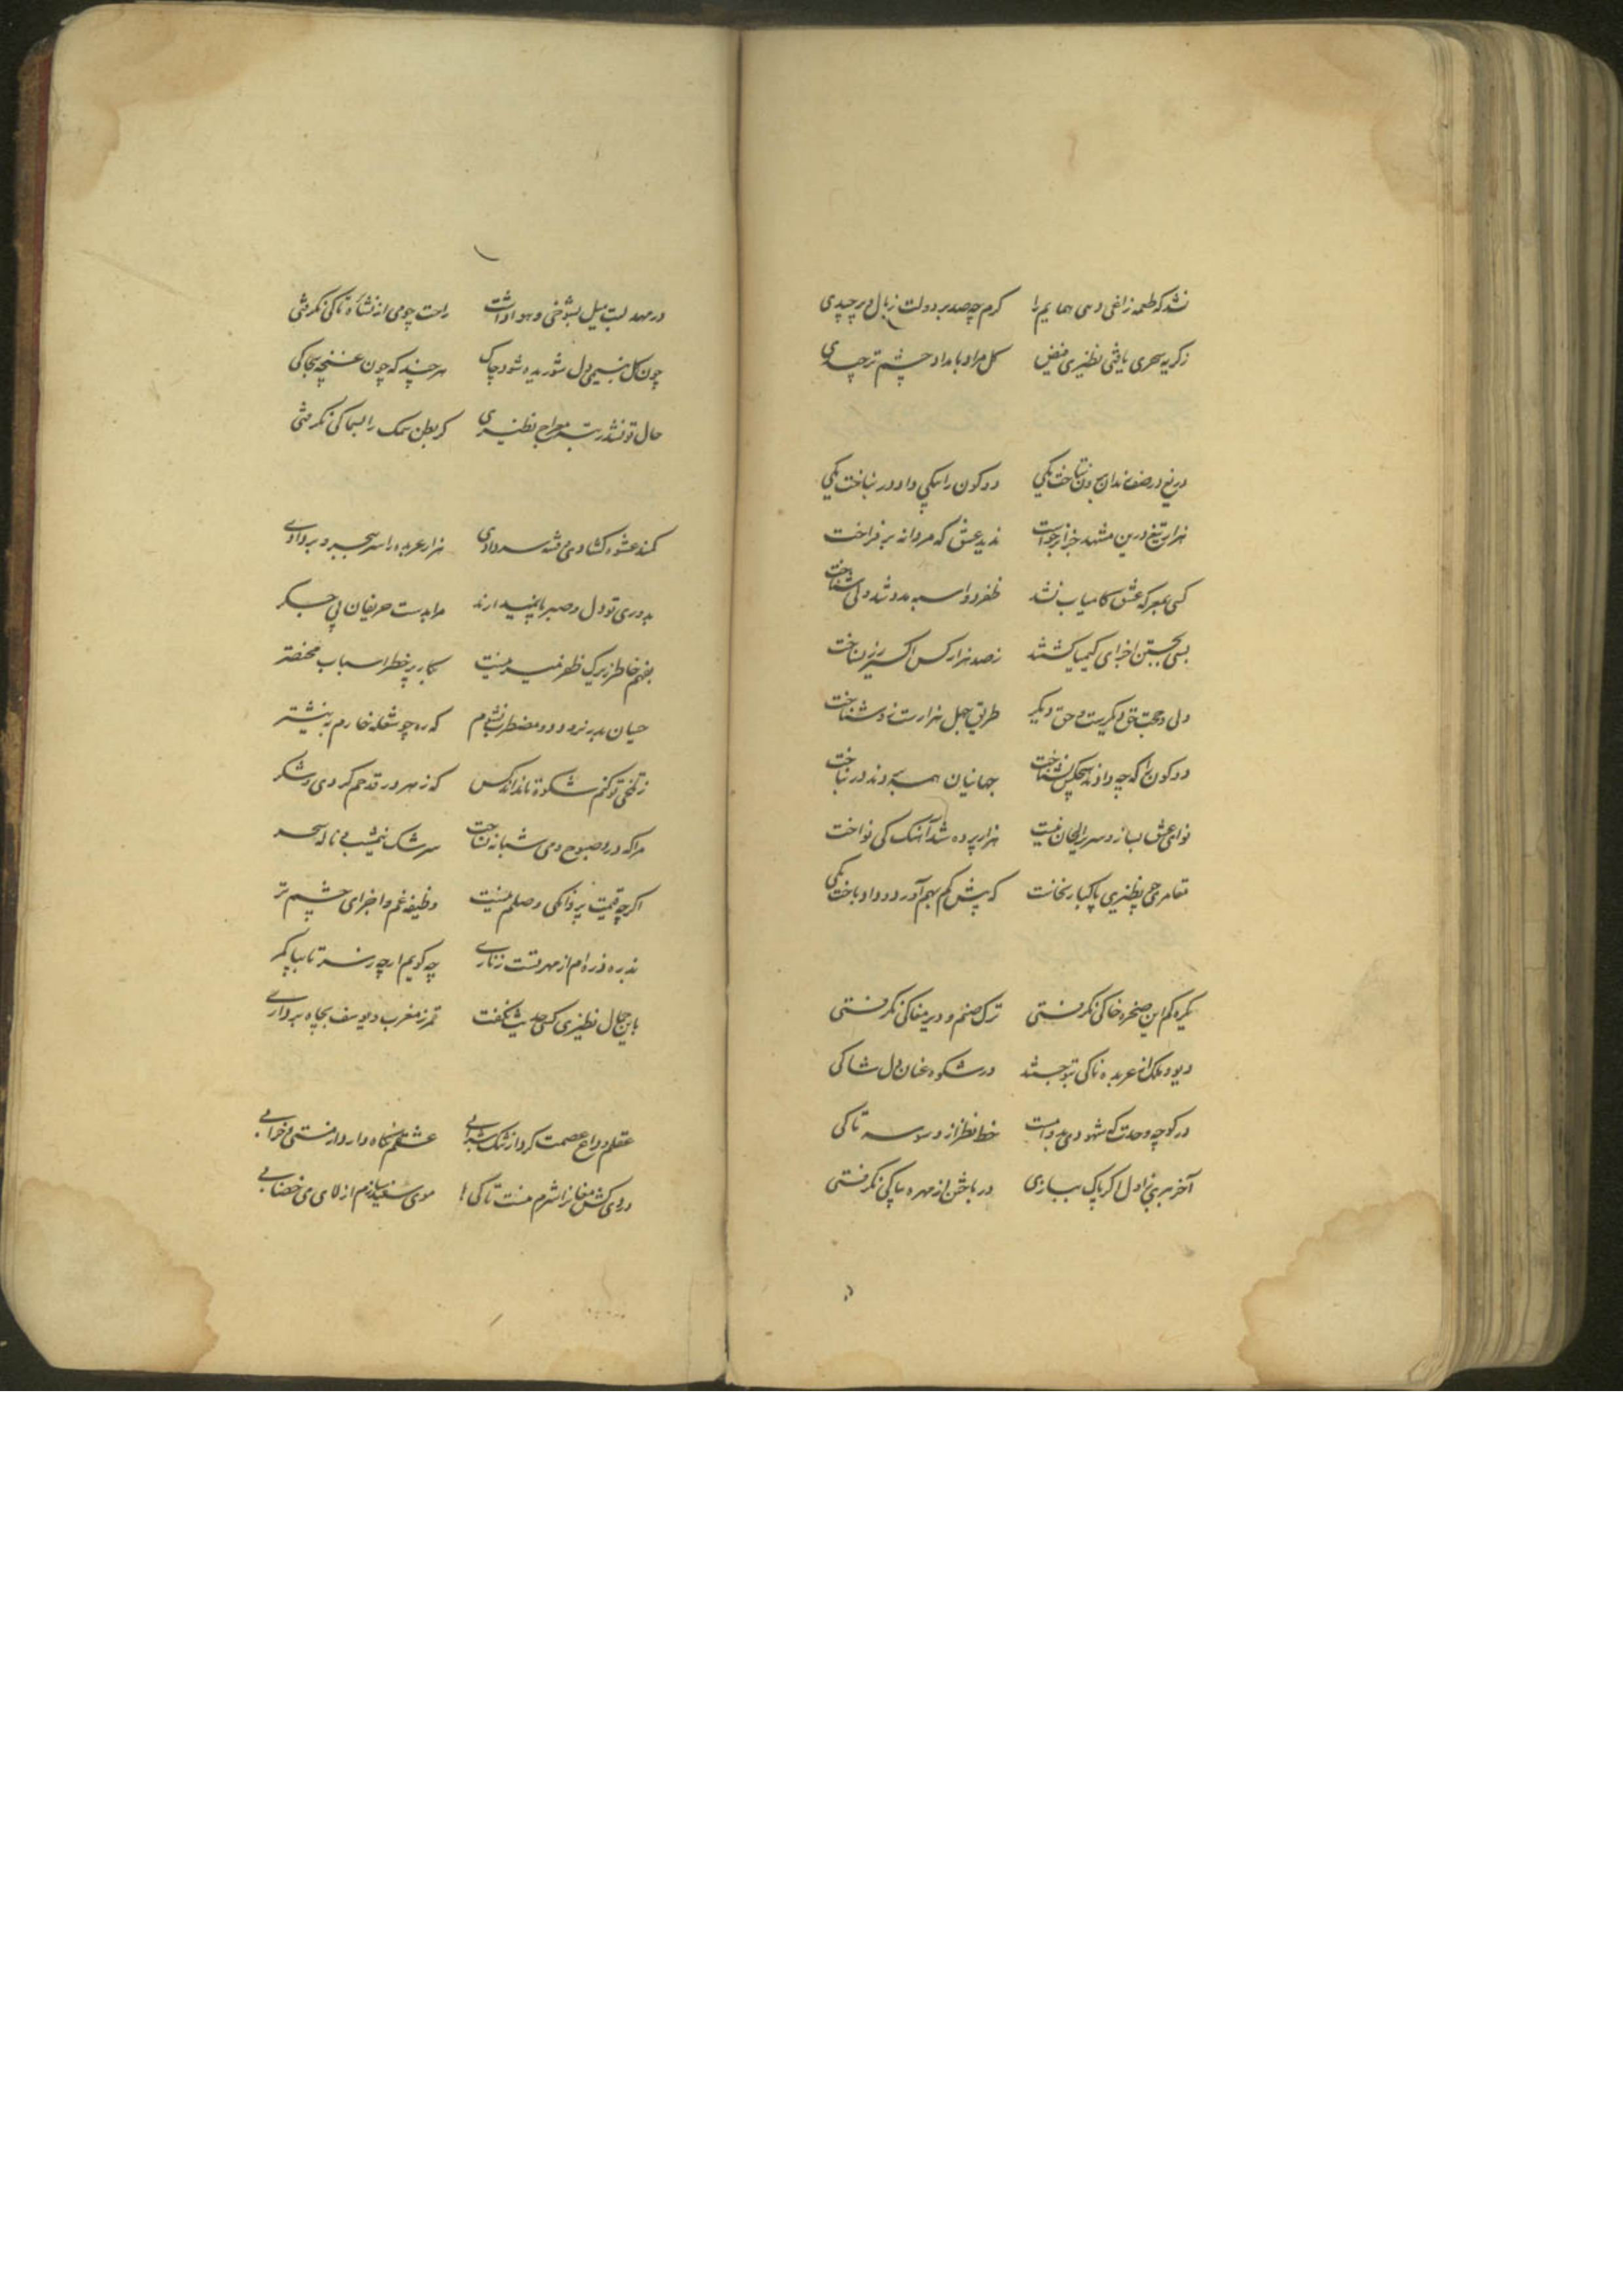 نشد که طعمه زاغی دهی همایم را کرم چه صد بر دولت ز بال و پر چیدی
ز گریه سحری یافتی نظیری فیض گل مراد بامداد چشم تر چیدی
دریغ در صف رندان بودن نباخت یکی دو کون را بیکی داو در نباخت یکی
هزار تیغ درین مشهد جز از جرات ندید عشق که مردانه بر فراخت
کسی بمعرکه عشق کامیاب نشد ظفر دو اسبه مدد شد ولی نتاخت
بسی بجستن اجزای کیمیا گشتند ز صد هزار کس اکسیر زر نساخت
دلی و محبت حق دیگریست و حق دیگر طریق جهل هزارست و شناخت
دو کون را که چه دادند هیچکس نشناخت جهانیان همه بردند و در نباخت
نوای عشق بساز و سر الحان نیست هزار پرده شد آهنگ کی نواخت
مقامری چو نظیری پاکباز نخاست که پیش کم بهم آورد و داو باخت یکی
یکره کم این صخره خاکی نگرفتی ترک صنم و دیر مغاکی نگرفتی
دیو و ملک از عربده ناکی بتو جستند در شکوه عنان دل شاکی
در کوچه وحدت که شهودی بدوامست خط نظر از وسوسه تاکی
آخر ببری نزد دل ار پاک ببازی در باختن از مهره پاکی نگرفتی
در مهد لبت میل بشوخی و هوا داشت راحت چو می از نشأه تاکی نگرفتی
چون گل به نسیمی دل شوریده شود چاک هر چند که چون غنچه بچاکی
حال تو نشد رتبه معراج نظیری کز بطن سمک را بسماکی نگرفتی
کمند عشوه گشادی و فتنه سر دادی هزار عربده را سر بحبر و بر دادی
بدوری تو دل و صبر پا نمیدارند مرا بدست حریفان بی جگر
بفهم خاطر زیرک ظفر میسر نیست بکار پر خطر اسباب مختصر
حیان بدر نرود دود مضطرب نشوم که ره چو شعله خارم به نیشتر
ز تلخی تو کنم شکوه تا نداند کس که زهر در قدحم کردی و شکر
مرا که درد صبوح و می شبانه نساخت سرشک نیمشبی ناله سحر
اگر چه قیمت پروانگی وصلم نیست وظیفه غم و اجرای چشم تر
بذره ذره‌ام از مهر تست زناری چه گویم ار چه ز سر تا بپا کمر
باین جمال نظیری کسی حدیث نگفت قمر ز مغرب و یوسف بچاه بر دادی
عقلم وداع عصمت کرد از تنک شرابی عشقم نگاه دارد از مستی و خرابی
دردی کش مغانرا شرم منست تا کی! موی سفید سازم از لای می خضابی